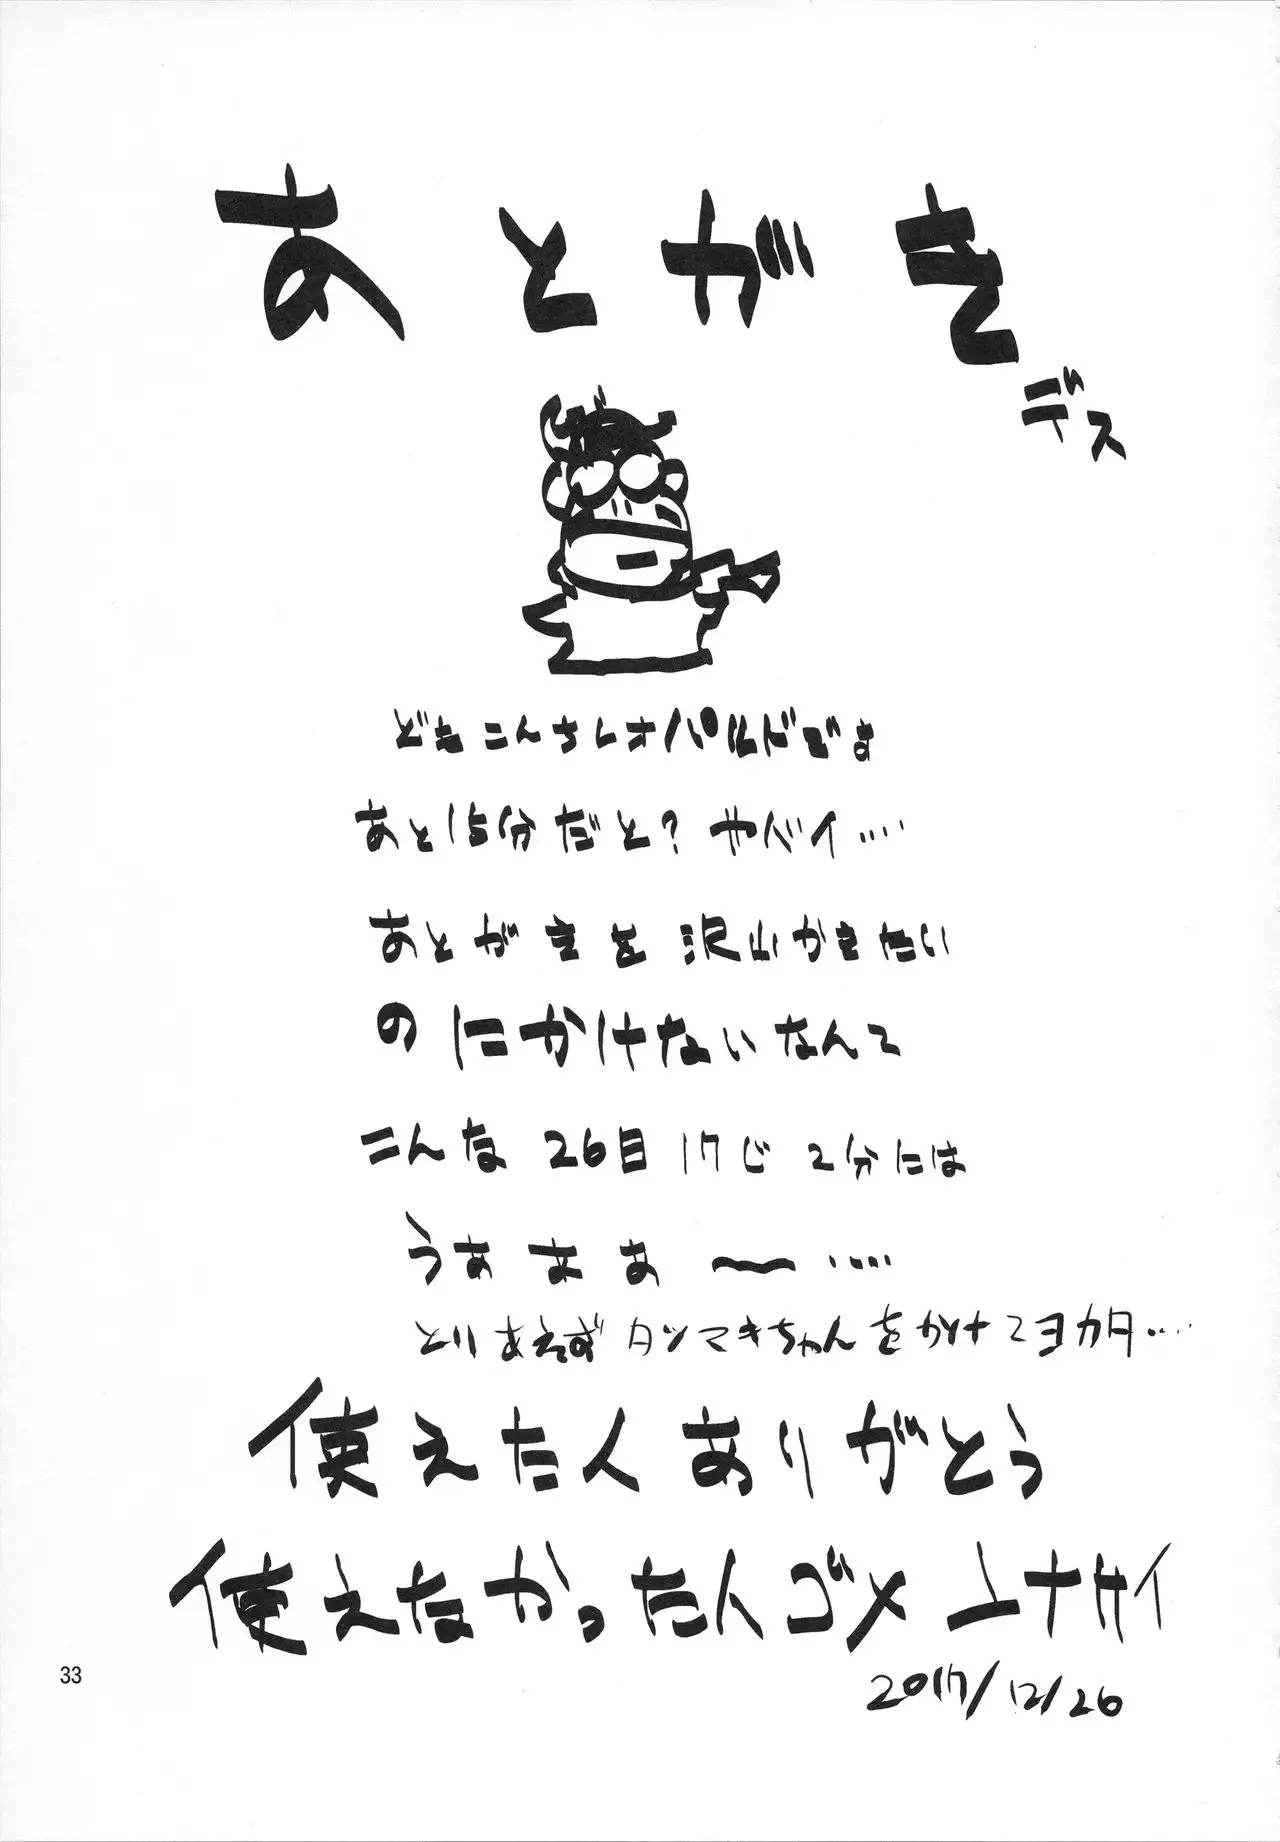 あとがき
デス
どもこんちレオパルドでよ
あと15分だと?ヤバイ‥‥
あとがきを沢山かきたい
のにかけないなんて
こんな26日17じ2分には
うああぁ〜‥‥
とりあえずタツマキちゃんをかけてヨカタ‥‥
使えた人ありがとう
使えなかった人ゴメンナサイ
2017/12/26
33